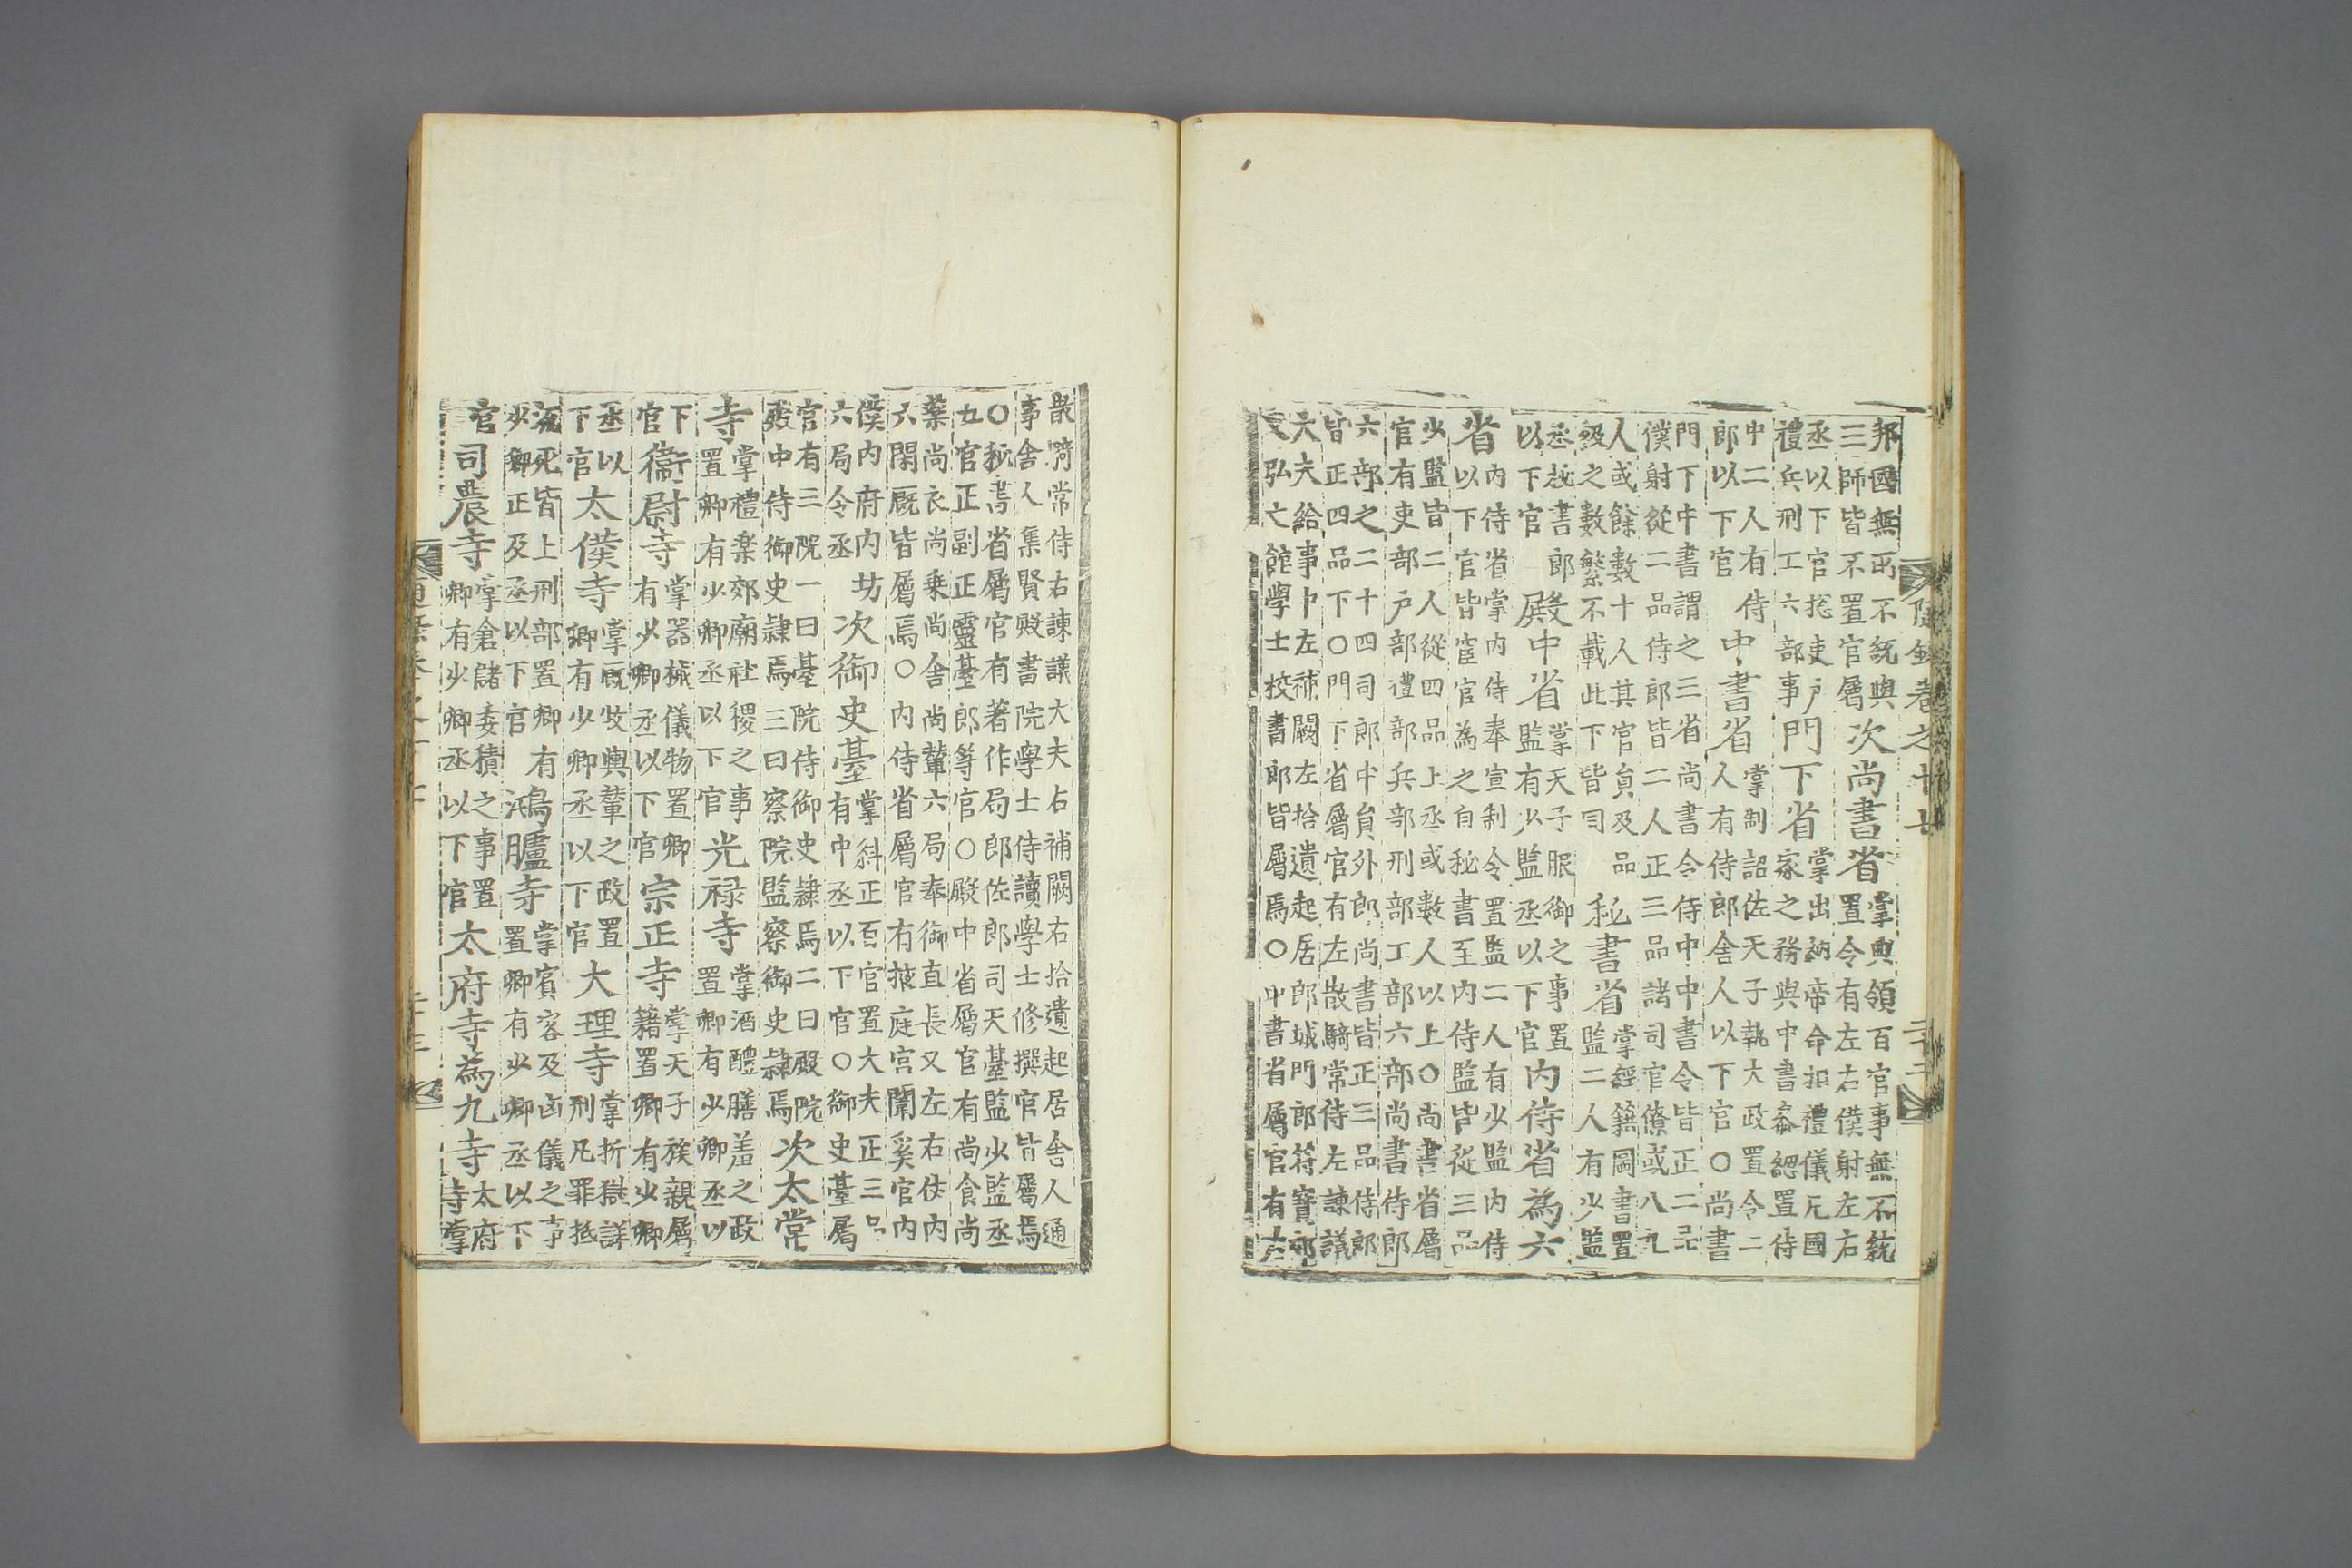 隨錄卷之十七 二十三
邦國無所不統與三師皆不置官屬次尚書省掌典領百官事無不統置令有左右僕射左右
丞以下官捴吏戶禮兵刑工六部事門下省掌出納帝命扣禮儀凡國家之務與中書叅緫置侍
中二人有侍郎以下官中書省掌制詔佐天子執大政置令二人有侍郎舍人以下官○尚書
門下中書謂之三省尚書令侍中中書令皆正二品僕射從二品侍郎皆二人正三品諸司官僚或八九
人或餘數十人其官員及品級之數繁不載此下皆同秘書省掌經籍圖書置監二人有少監
丞秘書郎以下官殿中省掌天子服御之事置監有少監丞以下官內侍省為六
省內侍省掌內侍奉宣制令置監二人有少監內侍以下官皆宦官為之自秘書至內侍監皆從三品
少監皆二人從四品上丞或數人以上○尚書省屬官有吏部戶部禮部兵部刑部工部六部尚書侍郎
六部之二十四司郎中員外郎尚書皆正三品侍郎皆正四品下○門下省屬官有左散騎常侍左諫議
大夫給事中左補闕左拾遺起居郎城門郎符寶郎又弘文館學士校書郎皆屬焉○中書省屬官有右
散騎常侍右諫議大夫右補闕右拾遺起居舍人通事舍人集賢殿書院學士侍讀學士修撰官皆屬焉
○秘書省屬官有著作局郎佐郎司天臺監少監丞五官正副正靈臺郎等官○殿中省屬官有尚食尚
藥尚衣尚乘尚舍尚輦六局奉御直長又左右仗內六閑廐皆屬焉○內侍省屬官有掖庭宮闈奚官內
僕內府內坊六局令丞次御史臺掌糾正百官置大夫正三品有中丞以下官○御史臺屬
官有三院一曰臺院侍御史隷焉二曰殿院殿中侍御史隷焉三曰察院監察御史隷焉次太常
寺掌禮樂郊廟社稷之事置卿有少卿丞以下官光祿寺掌酒醴膳羞之政置卿有少卿丞以
下官衞尉寺掌器械儀物置卿有少卿丞以下官宗正寺掌天子族親屬籍置卿有少卿
丞以下官太僕寺掌廐牧輿輦之政置卿有少卿丞以下官大理寺掌折獄詳刑凡罪抵
流死皆上刑部置卿有少卿正及丞以下官鴻臚寺掌賓客及凶儀之事置卿有少卿丞以下
官司農寺掌倉儲委積之事置卿有少卿丞以下官太府寺為九寺太府寺掌